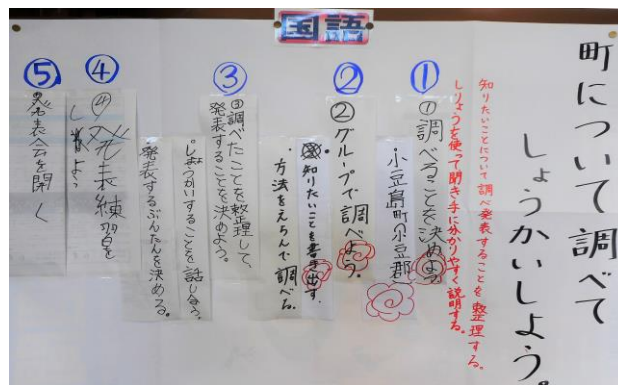 国語
町について調べて
しょうかいしよう。
知りたいことについて調べ発表することを整理する。
しりょうを使って聞き手に分かりやすく説明する。
①
①調べることを決めよう
小豆島町(小豆郡)
②
②グループで調べよう。
・知りたいことを書き出す。
・方法をえらんで調べる。
③
③調べたことを整理して、
発表することを決めよう。
・しょうかいすることを話し合う。
・発表するぶんたんを決める。
④
④発表練習を
しよう
⑤
発表会を開く